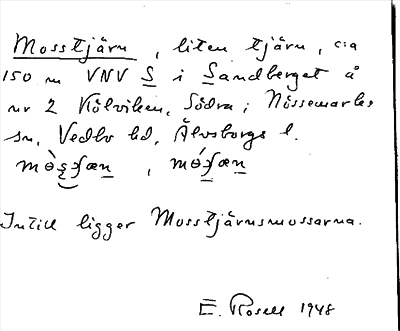 Mosstjärn, liten tjärn, c:a
150 m VNV S i Sandberget å
nr 2 Kölviken, Södra; Nössemarks
sn, Vedbo hd, Älvsborgs l.
Intill ligger Mosstjärnsmossarna.
E. Rosell 1948